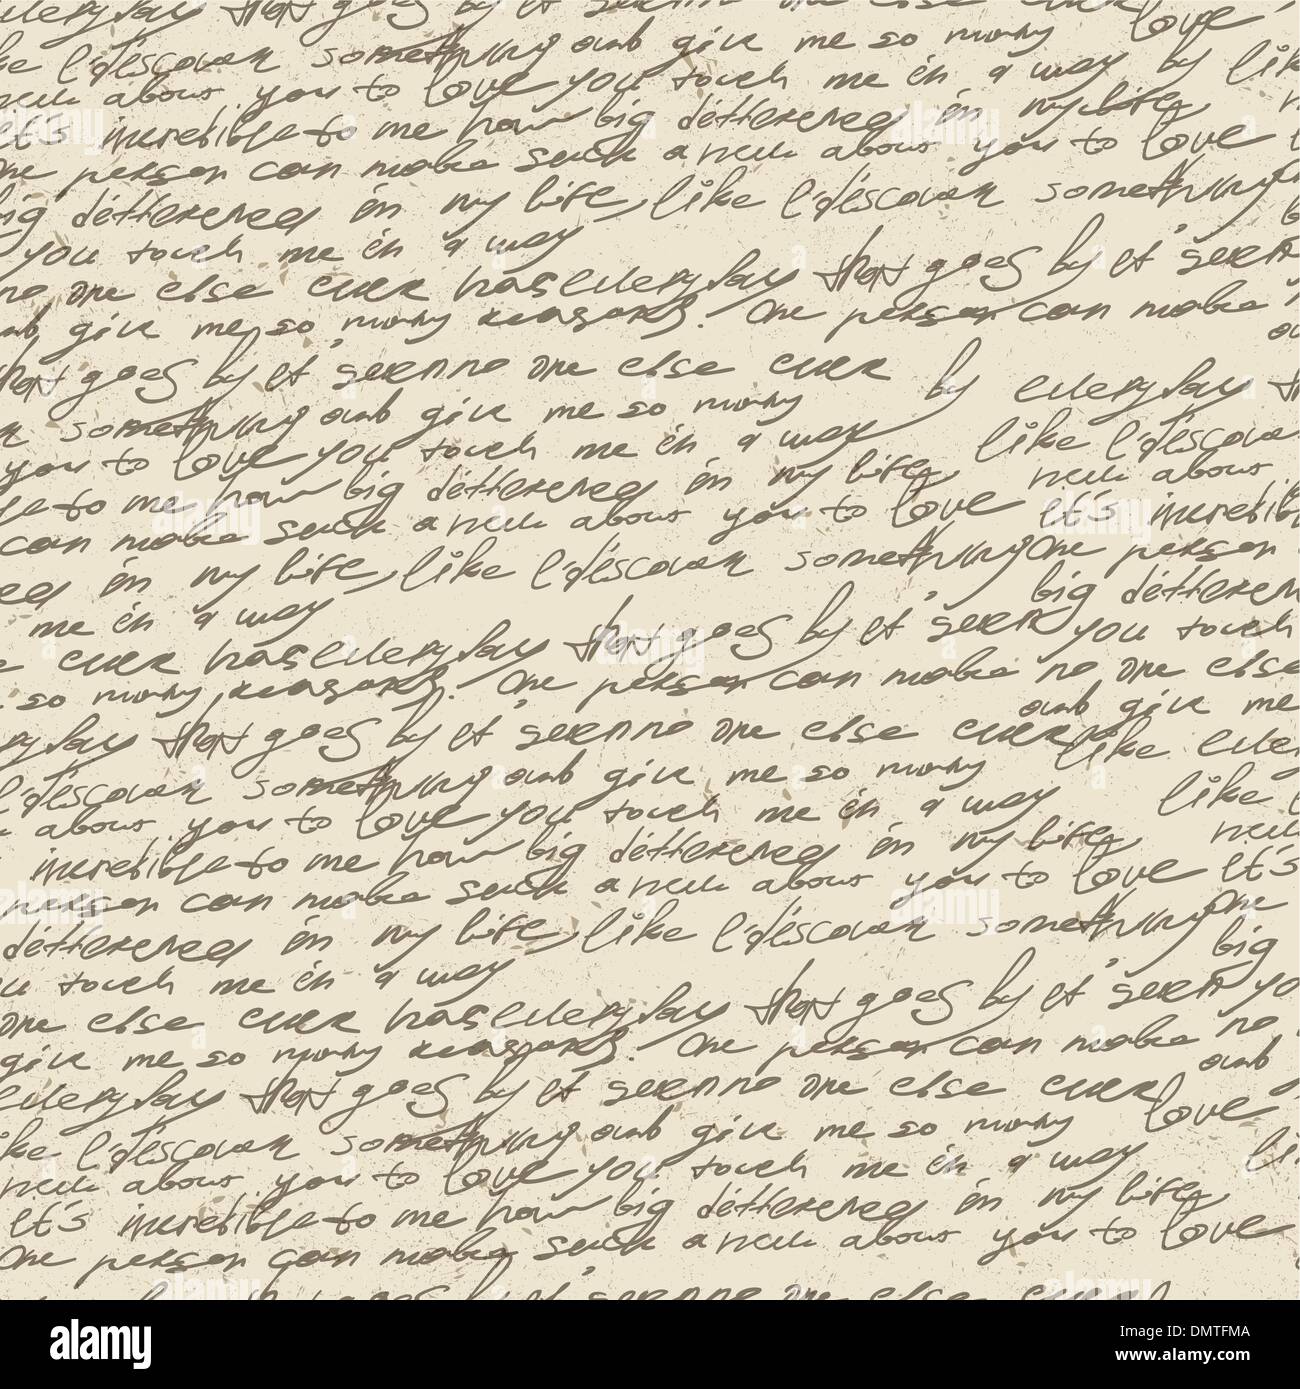 everyday that goes by it seems no one else ever
like I discover something and give me so many love
new about you to love you touch me in a way by like
it's incredible to me how big difference in my life
one person can make such a new about you to love
big difference in my life, like I discover something
you touch me in a way
no one else ever has everyday that goes by it seems
and give me so many reasons. One person can make
that goes by it seems no one else ever by everyday
something and give me so many like I discover
you to love you touch me in a way new about
to me how big difference in my life, it's incredible
can make such a new about you to love One person
in my life, like I discover something big difference
me in a way you touch
ever has everyday that goes by it seems no one else
so many reasons. One person can make and give me
that goes by it seems no one else ever like
I discover something and give me so many like
about you to love you touch me in a way new
incredible to me how big difference in my life, it's
person can make such a new about you to love One
difference in my life, like I discover something big
you touch me in a way
one else ever has everyday that goes by it seems no
give me so many reasons. One person can make and
everyday that goes by it seems no one else ever love
like I discover something and give me so many
new about you to love you touch me in a way
it's incredible to me how big difference in my life,
One person can make such a new about you to love
alamy
alamy
Image ID: DMTFMA
www.alamy.com